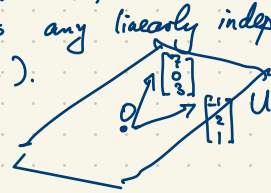 s any linearly indep
).
[7 0 3]
O
[-1 2 1]
U